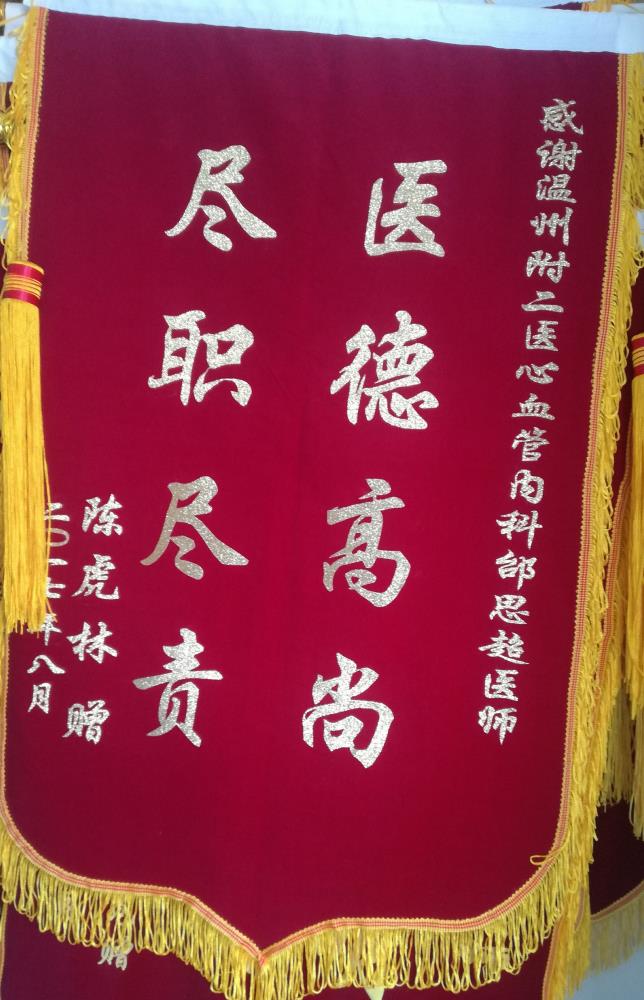 感谢温州附二医心血管内科邰思超医师
医德高尚
尽职尽责
陈虎林 赠
二〇一七年八月
赠